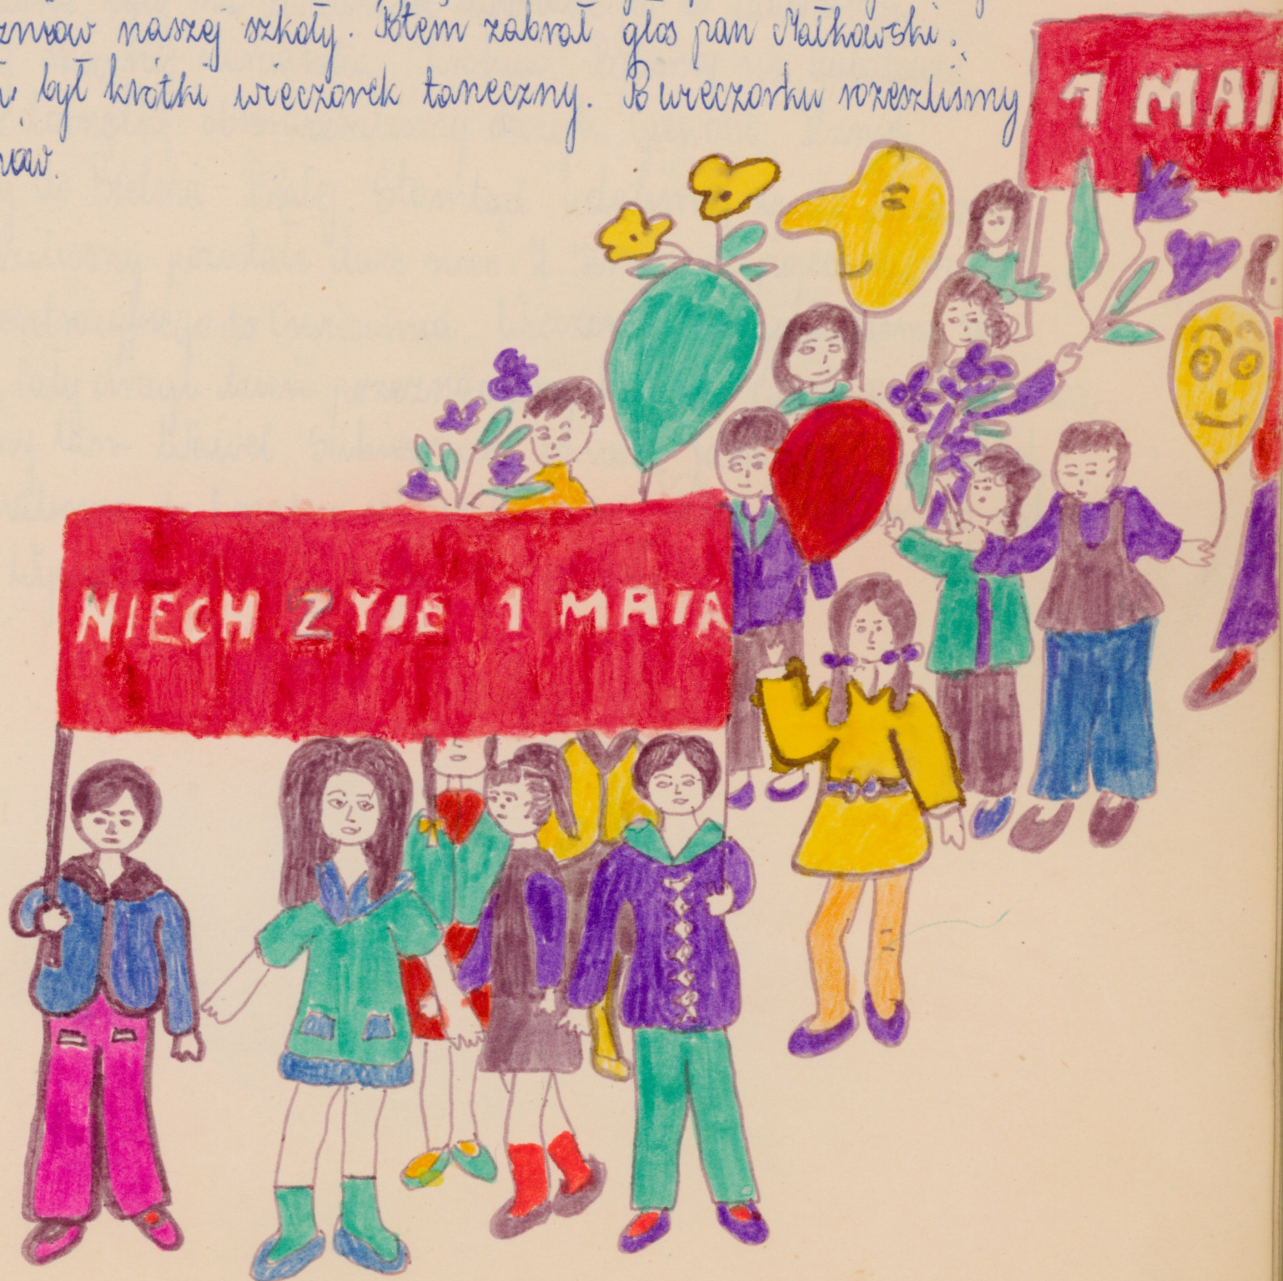 naszej szkoły. Potem zabrał głos pan Małkowski.
był krótki wieczorek taneczny. Po wieczorku rozeszliśmy
1 MAI
NIECH ZYIE 1 MAIA